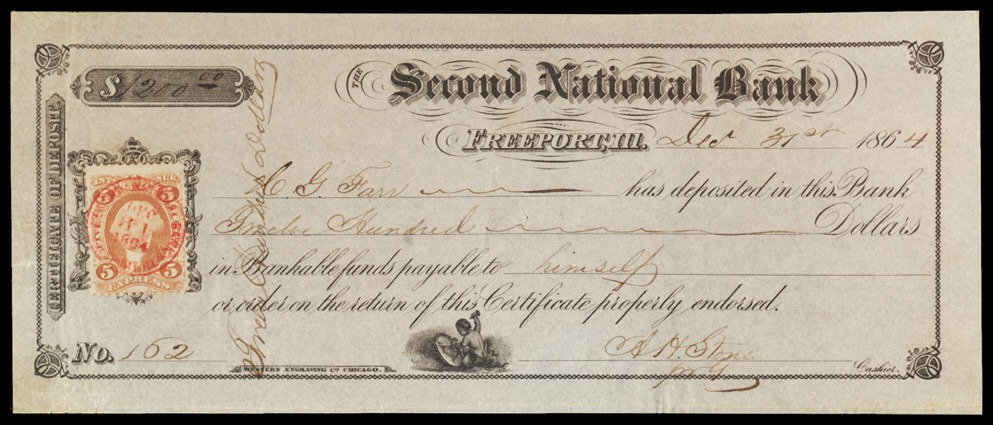 THE Second National Bank
$1200.00
FREEPORT, Ill. Dec 31st 1864
CERTIFICATE OF DEPOSIT.
C G Farr has deposited in this Bank
Twelve Hundred Dollars
in Bankable funds payable to himself
or order on the return of this Certificate properly endorsed.
5 5
5 5
EXPRESS
No. 162
A. H. Stone
Cashier.
WESTERN ENGRAVING CO. CHICAGO.
Dollars